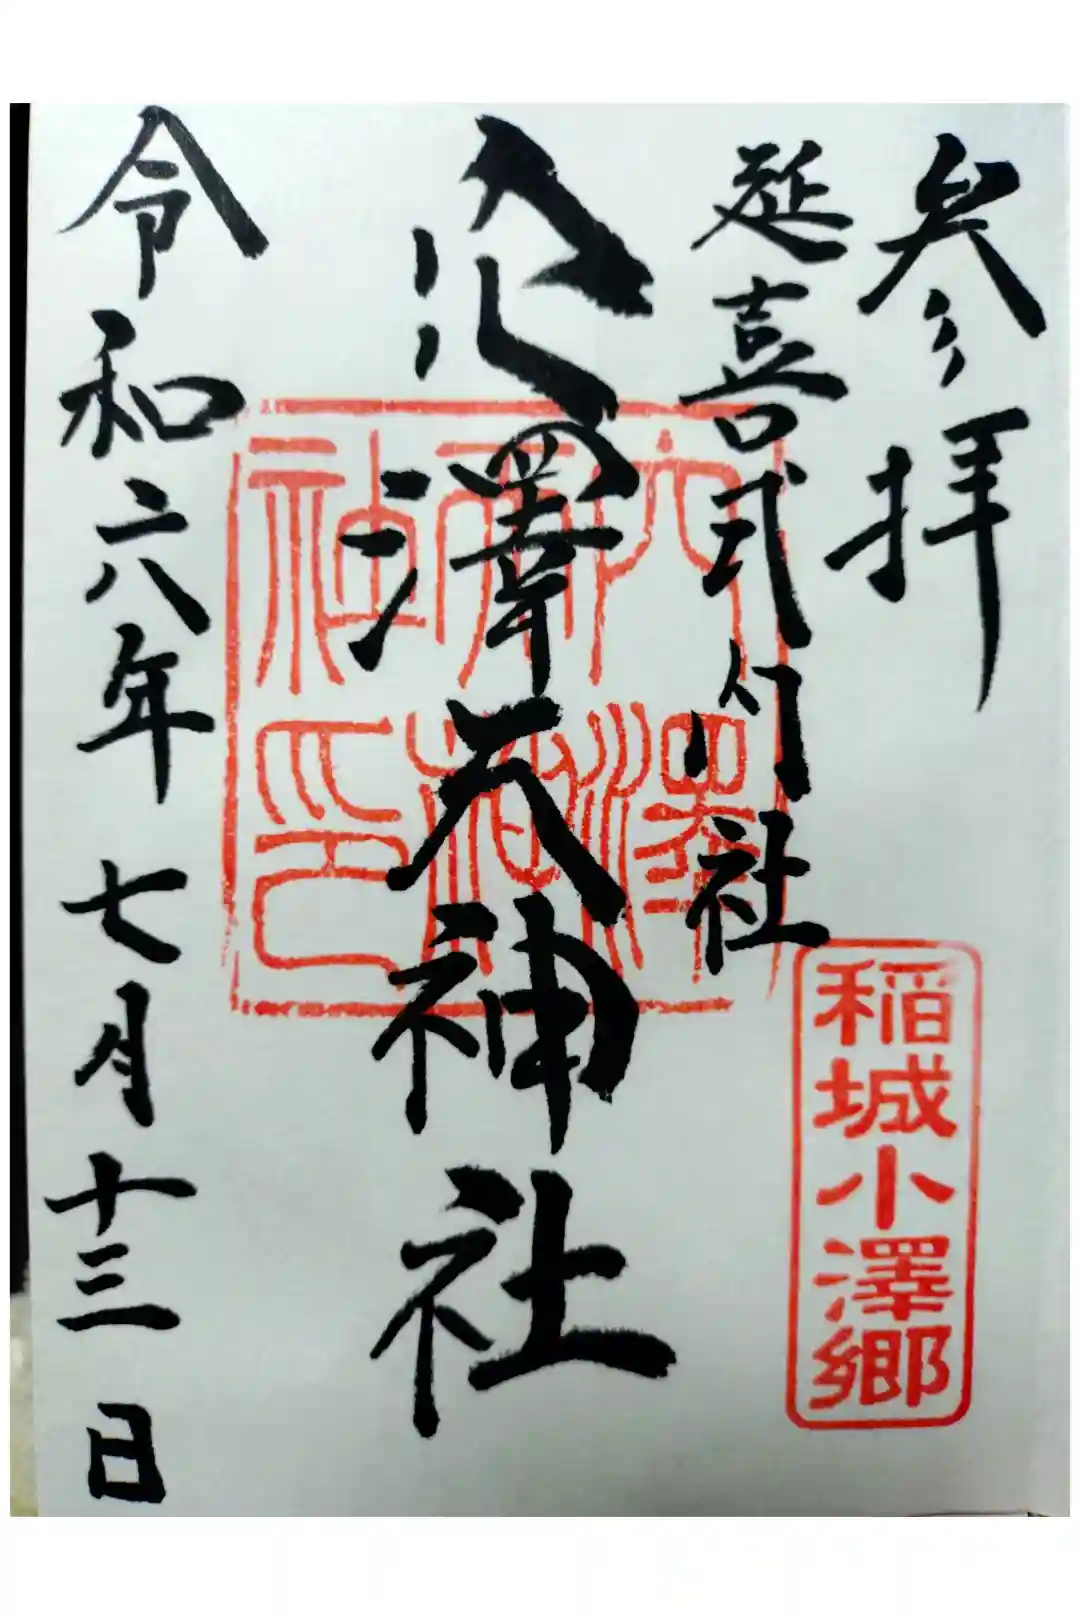 参拝
延喜式内社
稲城小澤郷
穴澤天神社
穴澤天神社印
令和六年七月十三日